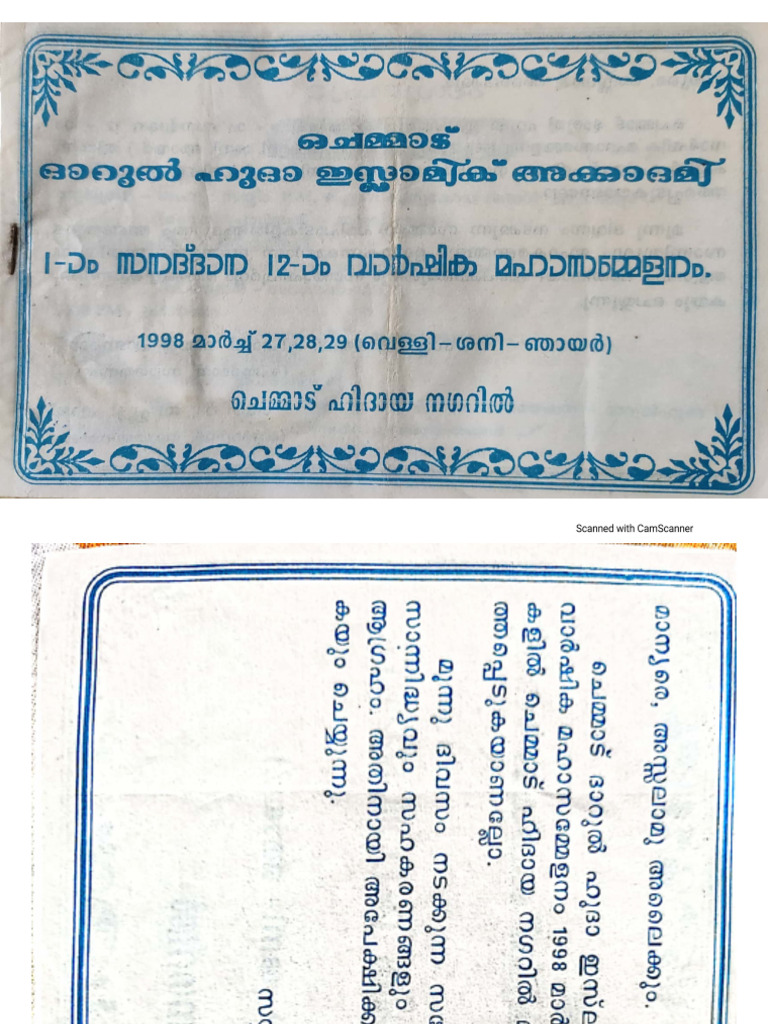 ചെമ്മാട്
ദാറുൽ ഹുദാ ഇസ്ലാമിക് അക്കാദമി
1-ാം സനദ്ദാന 12-ാം വാർഷിക മഹാസമ്മേളനം.
1998 മാർച്ച് 27,28,29 (വെള്ളി-ശനി-ഞായർ)
ചെമ്മാട് ഹിദായ നഗറിൽ
Scanned with CamScanner
മാന്യരെ, അസ്സലാമു അലൈക്കും.
ചെമ്മാട് ദാറുൽ ഹുദാ
വാർഷിക മഹാസമ്മേളനം 1998
കളിൽ ചെമ്മാട് ഹിദായ നഗറിൽ
ത്തപ്പെടുകയാണല്ലോ.
മൂന്നു ദിവസം നടക്കുന്ന
സാന്നിദ്ധ്യവും സഹകരണങ്ങളും
ആഗ്രഹം. അതിനായി
കയും ചെയ്യുന്നു.